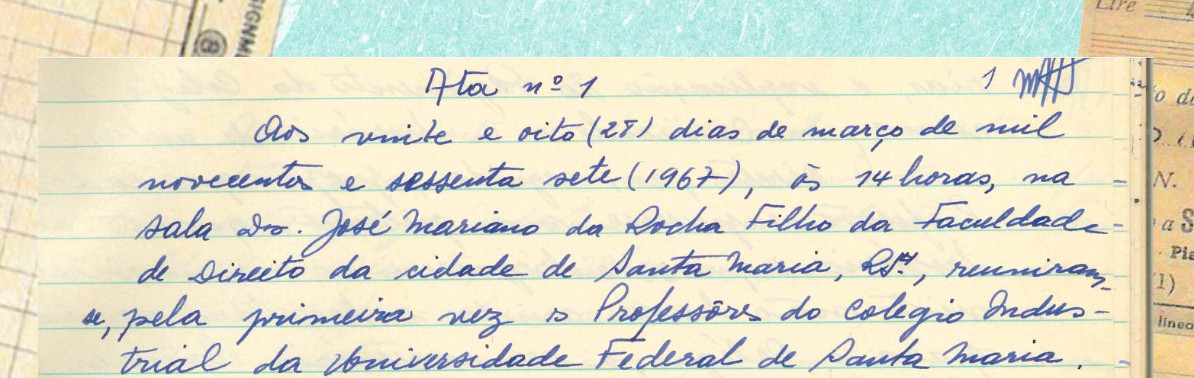 SIGNM
8
Lire
Ata nº 1
1
Aos vinte e oito (28) dias de março de mil
novecentos e sessenta sete (1967), às 14 horas, na
sala Dr. José Mariano da Rocha Filho da Faculdade
de Direito da cidade de Santa Maria, RS, reuniram-
se, pela primeira vez os Professôres do Colegio Indus-
trial da Universidade Federal de Santa Maria.
N.
a S
Pia
1)
linea